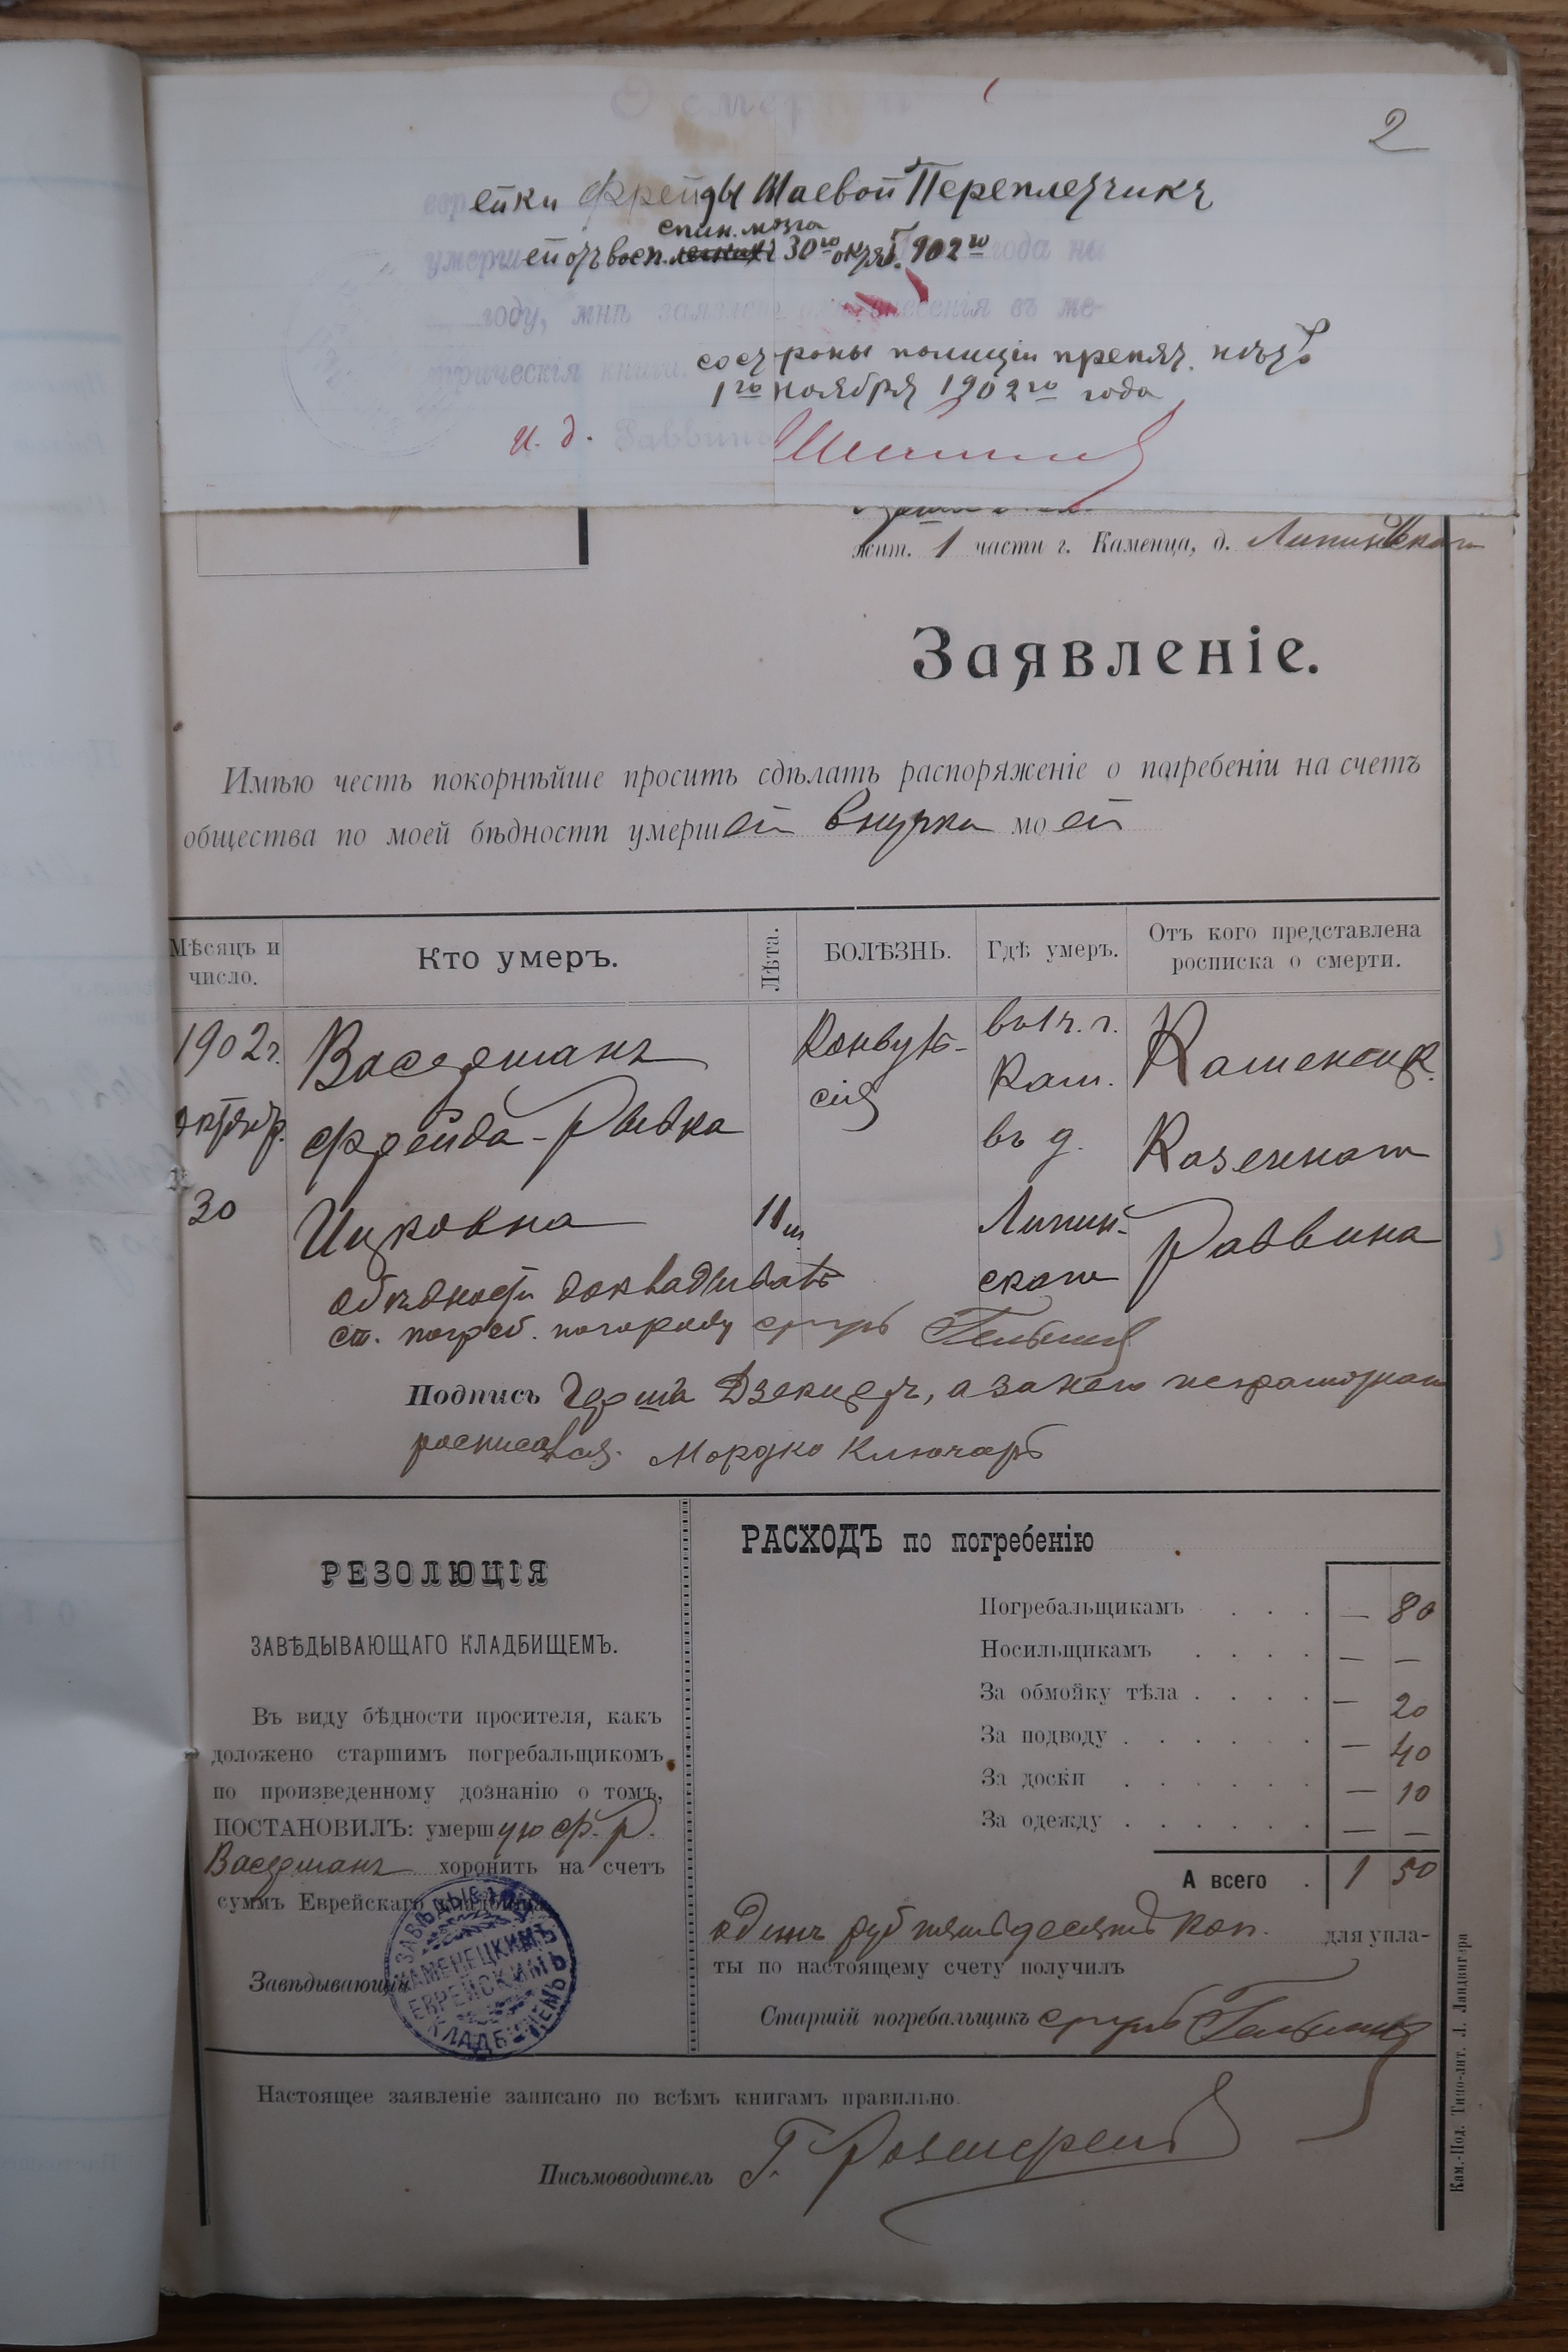 2
еврейки Фрейды Шаевой Переплетчикъ
спин. мозга
умершей отъ восп. легкихъ 30го октяб. 902го года на
году, мнѣ заявлено для внесенія въ ме-
трическія книги.
со стороны полиціи препят. нѣтъ
1го ноября 1902го года
И. д. Раввина
жит. 1 части г. Каменца, д. Липинскаго
Заявленіе.
Имѣю честь покорнѣйше просить сдѣлать распоряженіе о погребеніи на счетъ
общества по моей бѣдности умершей внучки моей
Мѣсяцъ и число. Кто умеръ. Лѣта. БОЛѢЗНЬ. Гдѣ умеръ. Отъ кого представлена росписка о смерти.
1902 г. Васерманъ Конвуль- въ 1 ч. г. Каменецк.
октябр. Фрейда-Рывка сія Кам. въ д. Казеннаго
30 Ицковна 11 м. Липин- Раввина
скаго
о бѣдности докладывалъ
ст. погреб. Сруль Гельман
Подпись Герш Дзекцеръ, а за него неграмотнаго
росписался Мордко Ключарь
РЕЗОЛЮЦІЯ
ЗАВѢДЫВАЮЩАГО КЛАДБИЩЕМЪ.
Въ виду бѣдности просителя, какъ
доложено старшимъ погребальщикомъ
по произведенному дознанію о томъ,
ПОСТАНОВИЛЪ: умершую Ф. Р.
Васерманъ хоронить на счетъ
суммъ Еврейскаго кладбища.
Завѣдывающій
ЗАВѢДЫВАЮЩІЙ КАМЕНЕЦКИМЪ ЕВРЕЙСКИМЪ КЛАДБИЩЕМЪ
РАСХОДЪ по погребенію
Погребальщикамъ . . . — 80
Носильщикамъ . . . . — —
За обмойку тѣла . . . . — 20
За подводу . . . . . . — 40
За доски . . . . . . — 10
За одежду . . . . . . — —
А всего . 1 50
одинъ руб пятьдесятъ коп. для упла-
ты по настоящему счету получилъ
Старшій погребальщикъ Сруль Гельман
Настоящее заявленіе записано по всѣмъ книгамъ правильно.
Письмоводитель Г.
Кам.-Под. Типо-лит. Л. Ландвигера